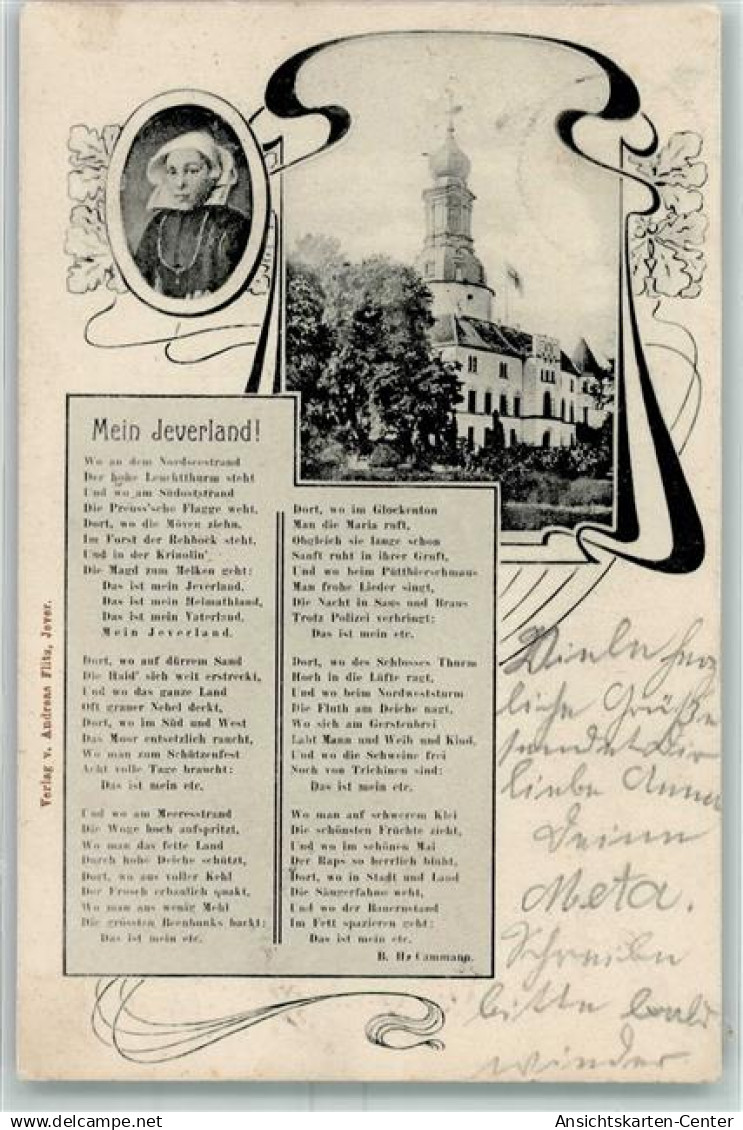 Mein Jeverland!
Wo an dem Nordseestrand
Der hohe Leuchtthurm steht
Und wo am Südoststrand
Die Preuss'sche Flagge weht,
Dort, wo die Möven ziehn,
Im Forst der Rehbock steht,
Und in der Krinolin'
Die Magd zum Melken geht:
Das ist mein Jeverland,
Das ist mein Heimathland,
Das ist mein Vaterland.
Mein Jeverland.
Dort, wo auf dürrem Sand
Die Haid' sich weit erstreckt,
Und wo das ganze Land
Oft grauer Nebel deckt,
Dort, wo im Süd und West
Das Moor entsetzlich raucht,
Wo man zum Schützenfest
Acht volle Tage braucht:
Das ist mein etc.
Und wo am Meeresstrand
Die Woge hoch aufspritzt,
Wo man das fette Land
Durch hohe Deiche schützt,
Dort, wo aus voller Kehl
Der Frosch erbaulich quakt,
Wo man aus wenig Mehl
Die grössten Beenbunks backt:
Das ist mein etc.
Dort, wo im Glockenton
Man die Maria ruft,
Obgleich sie lange schon
Sanft ruht in ihrer Gruft,
Und wo beim Püttbierschmaus
Man frohe Lieder singt,
Die Nacht in Saus und Braus
Trotz Polizei verbringt:
Das ist mein etc.
Dort, wo des Schlosses Thurm
Hoch in die Lüfte ragt,
Und wo beim Nordweststurm
Die Fluth am Deiche nagt,
Wo sich am Gerstenbrei
Labt Mann und Weib und Kind,
Und wo die Schweine frei
Noch von Trichinen sind:
Das ist mein etc.
Wo man auf schwerem Klei
Die schönsten Früchte zieht,
Und wo im schönen Mai
Der Raps so herrlich blüht,
Dort, wo in Stadt und Land
Die Säugerfahne weht,
Und wo der Bauernstand
Im Fett spazieren geht:
Das ist mein etc.
B. H. Cammann.
Verlag v. Andreas Flitz, Jever.
Viele herz
liche Grüße
sendet Dir
liebe Anna
Deine
Meta.
Schreibe
bitte bald
wieder
Ansichtskarten-Center